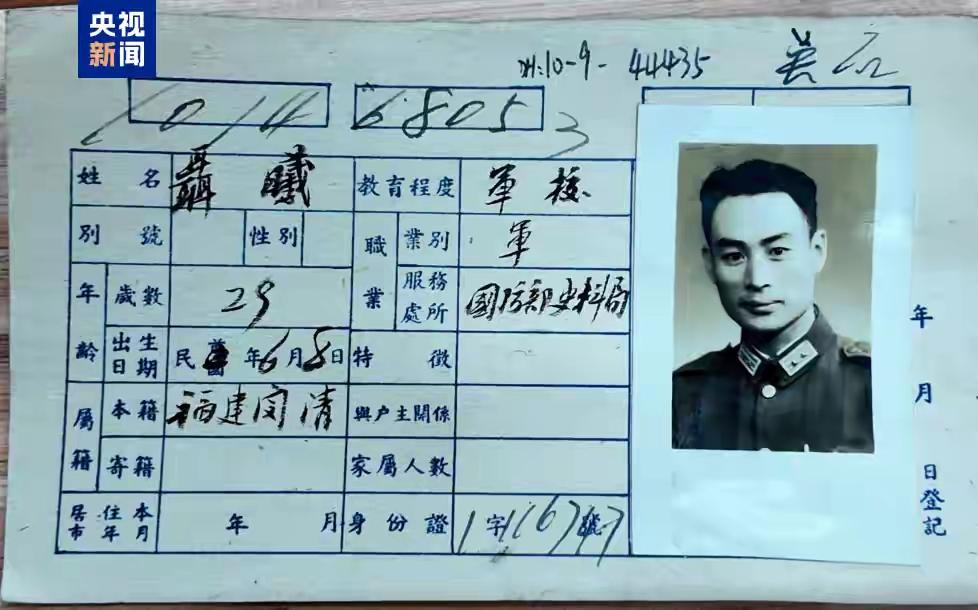 央视
新闻
44435
1014 6805 3
姓名 聶曦 教育程度 軍校
別號 性別 職業 業別 軍
年齡 歲數 29 服務處所 國防部史料局
出生日期 民國 年6月8日 特徵
屬籍 本籍 福建閩清 與户主關係
寄籍 家屬人數
居住本市年月 年 月 身份證 字 號
年 月 日登記